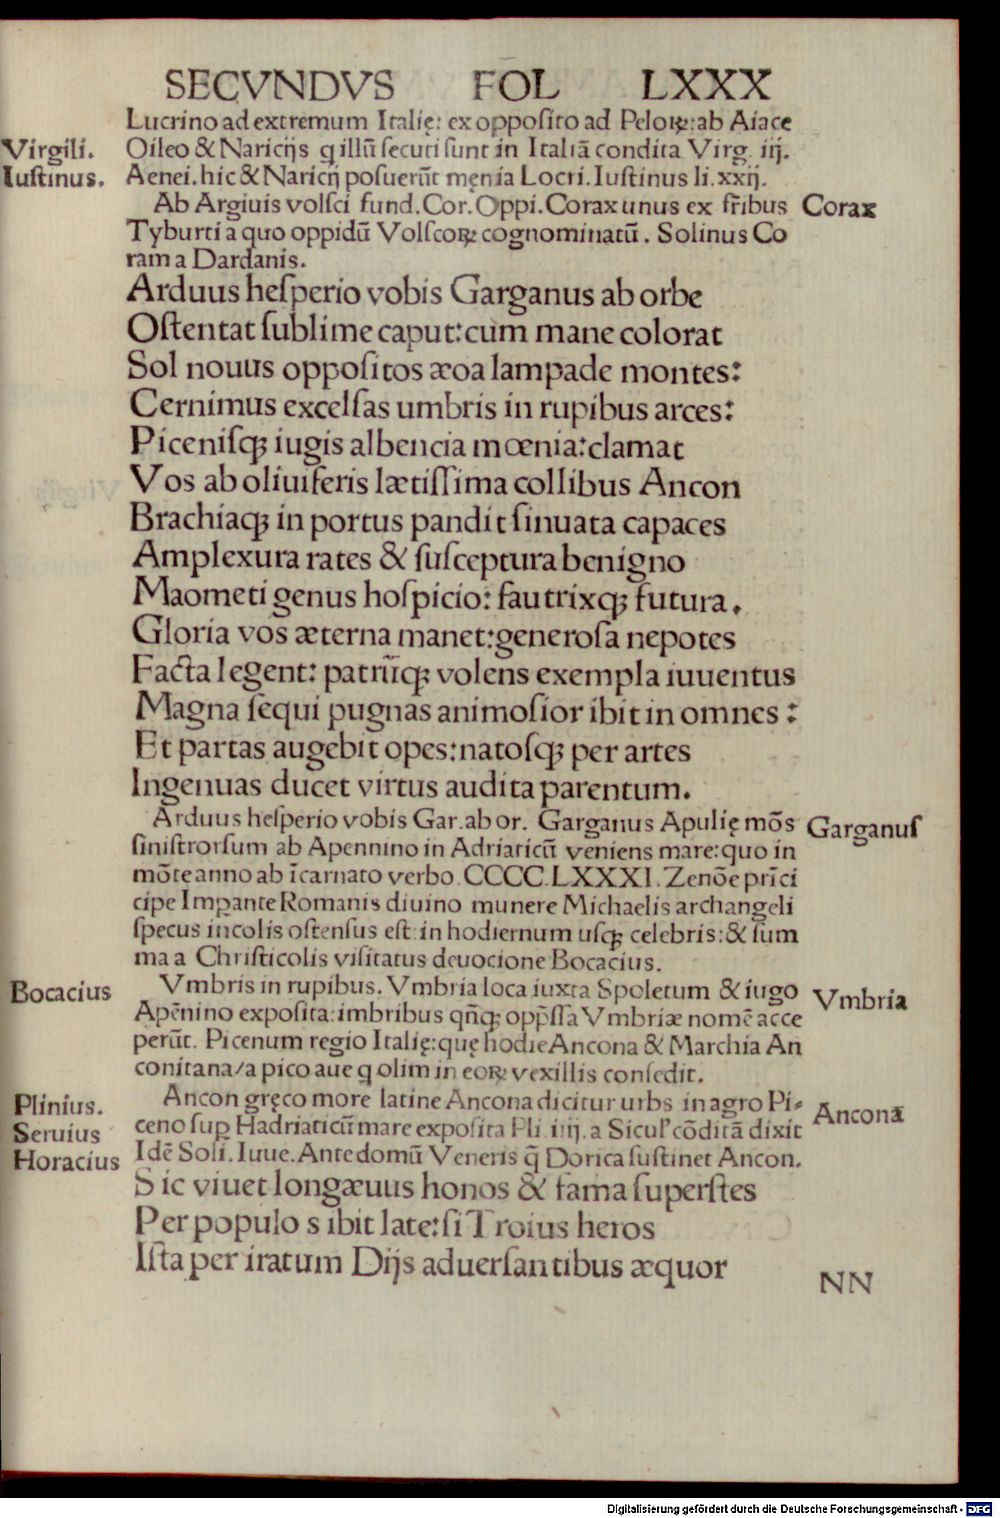 SECVNDVS FOL LXXX
Lucrino ad extremum Italię: ex opposito ad Peloꝝ: ab Aiace
Virgili. Oileo & Naricijs q illū secuti sunt in Italiā condita Virg. iij.
Iustinus. Aenei. hic & Naricij posuerūt męnia Locri. Iustinus li. xxij.
Ab Argiuis volsci fund. Cor. Oppi. Corax unus ex fr̄ibus Corax
Tyburti a quo oppidū Volscoꝝ cognominatū. Solinus Co
ram a Dardanis.
Arduus hesperio vobis Garganus ab orbe
Ostentat sublime caput: cum mane colorat
Sol nouus oppositos æoa lampade montes:
Cernimus excelsas umbris in rupibus arces:
Picenisqꝫ iugis albencia mœnia: clamat
Vos ab oliuiferis lætissima collibus Ancon
Brachiaqꝫ in portus pandit sinuata capaces
Amplexura rates & susceptura benigno
Maometi genus hospicio: fautrixqꝫ futura.
Gloria vos æterna manet: generosa nepotes
Facta legent: patrūqꝫ volens exempla iuuentus
Magna sequi pugnas animosior ibit in omnes:
Et partas augebit opes: natosqꝫ per artes
Ingenuas ducet virtus audita parentum.
Arduus hesperio vobis Gar. ab or. Garganus Apulię mōs Garganus
sinistrorsum ab Apennino in Adriaticū veniens mare: quo in
mōte anno ab īcarnato verbo. CCCC. LXXXI. Zenōe prīci
cipe Impante Romanis diuino munere Michaelis archangeli
specus incolis ostensus est: in hodiernum usqꝫ celebris: & sum
ma a Christicolis visitatus deuocione Bocacius.
Bocacius Vmbris in rupibus. Vmbria loca iuxta Spoletum & iugo Vmbria
Apēnino exposita: imbribus qn̄qꝫ opp̄ssa Vmbriæ nomē acce
perūt. Picenum regio Italię: quę hodie Ancona & Marchia An
conitana/a pico aue q olim in eoꝝ vexillis consedit.
Plinius. Ancon gręco more latine Ancona dicitur urbs in agro Pi- Anconā
Seruius ceno suꝑ Hadriaticū mare exposita Pli. iiij. a Siculꝰ cōditā dixit
Horacius Idē Soli. Iuue. Ante domū Veneris q̄ Dorica sustinet Ancon.
Sic viuet longæuus honos & fama superstes
Per populos ibit late: si Troius heros
Ista per iratum Dijs aduersantibus æquor
NN
Digitalisierung gefördert durch die Deutsche Forschungsgemeinschaft - DFG